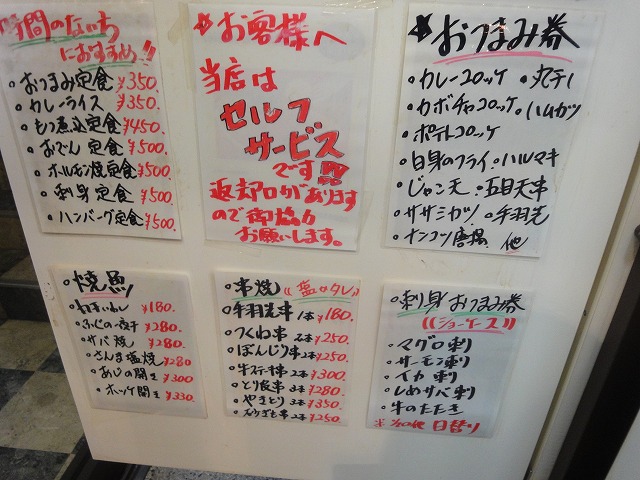 時間のない方
におすすめ!!
・おつまみ定食 ¥350.
・カレーライス ¥350.
・もつ煮込定食 ¥450.
・おでん 定食 ¥500.
・ホルモン焼定食 ¥500.
・刺身定食 ¥500.
・ハンバーグ定食 ¥500.
お客様へ
当店は
セルフ
サービス
です!!!
返却口があります
ので御協力
お願いします。
おつまみ券
・カレーコロッケ ・丸干し
・カボチャコロッケ ・ハムカツ
・ポテトコロッケ
・白身のフライ ・ハルマキ
・じゃこ天 ・五目天串
・ササミカツ ・手羽先
・ナンコツ唐揚 他
・焼魚
¥180.
¥280.
・サバ焼 ¥280.
・さんま塩焼 ¥280
・あじの開き ¥300
・ホッケ開き ¥330.
・串焼 《塩orタレ》
・手羽先串 1本 ¥180.
・つくね串 2本 ¥250.
・ぼんじり串 2本 ¥250.
・牛ステーキ串 2本 ¥300.
・とり皮串 3本 ¥280.
・やきとり 3本 ¥350.
2本 ¥250.
・刺身おつまみ券
《ショーケース》
・マグロ刺
・サーモン刺
・イカ刺
・しめサバ刺
・牛のたたき
※ その他 日替り